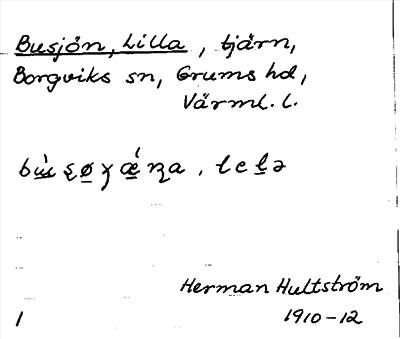 Busjön, Lilla, tjärn,
Borgviks sn, Grums hd,
Värml. l.
Herman Hultström
1 1910-12